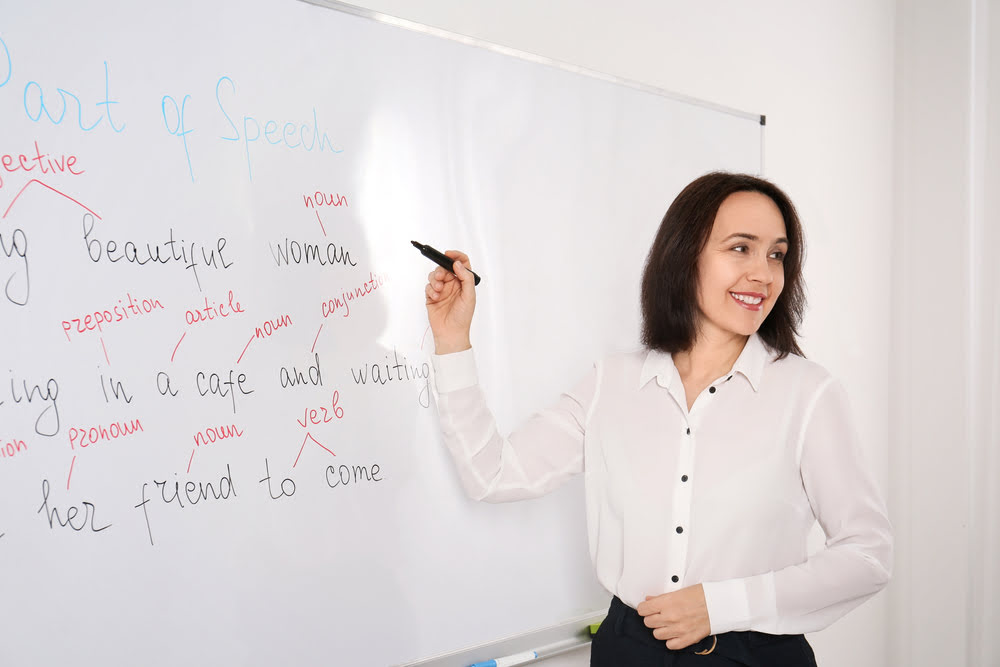 Part of Speech
jective
noun
ng beautiful woman
preposition article noun conjuncti
ing in a cafe and waiting
ion pronoun noun verb
her friend to come